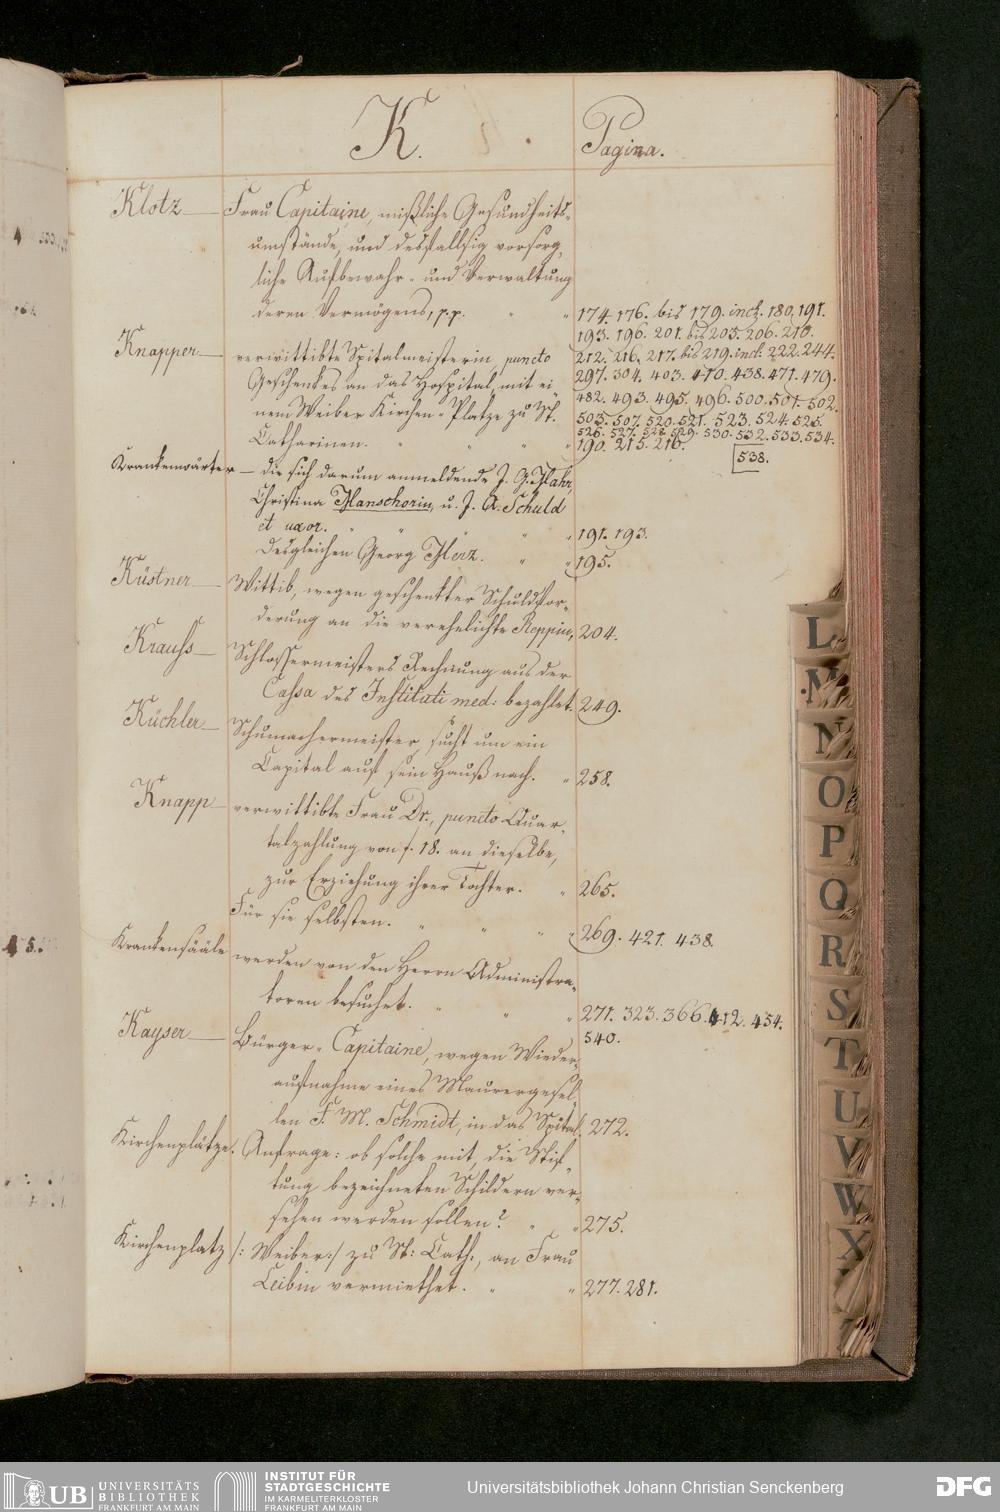 K. Pagina.
Klotz — Frau Capitaine, mißliche Gesundheits-
umstände, und desfallsig vorsorg-
liche Aufbewahr- und Verwaltung
deren Vermögens, p. p. " " 174. 176. bis 179. incl. 180. 191.
193. 196. 201. bis 203. 206. 210.
Knapper — verwittibte Spitalmeisterin, puncto 212. 216. 217. bis 219. incl: 222. 244.
Geschenkes an das Hospital, mit ei- 297. 304. 403. 410. 438. 471. 479.
nem Weiber Kirchen-Platze zu St. 482. 493. 495. 496. 500. 501. 502.
503. 507. 520. 521. 523. 524. 525.
526. 527. 528. 529. 530. 532. 533. 534.
Catharinen. " " " 190. 215. 216. 538.
Krankenwärter — die sich darum anmeldende J. G. Hahr,
Christina Hanschorin, u. J. A. Schuld
et uxor. " " " " 191. 193.
desgleichen Georg Herz. " " 195.
Küstner — Wittib, wegen geschenkter Schuldfor-
derung an die verehelichte Reppin, 204.
Krauss — Schlossermeisters Rechnung aus der
Cassa des Instituti med: bezahlet. 249.
Küchler — Schumachermeister, sucht um ein
Capital auf sein Hauß nach. " 258.
Knapp — verwittibte Frau Dr., puncto Quar-
talzahlung von f. 18. an dieselbe,
zur Erziehung ihrer Tochter. " 265.
Für sie selbsten. " " " " 269. 421. 438.
Krankensääle werden von den Herrn Administra-
toren besuchet. " " " 271. 323. 366. 412. 454.
540.
Kayser — Bürger-Capitaine, wegen Wieder-
aufnahme eines Maurergesel-
len F. M. Schmidt, in das Spital. 272.
Kirchenplätze. Anfrage: ob solche mit, die Stif-
tung bezeichneten Schildern ver-
sehen werden sollen? " " 275.
Kirchenplatz /: Weiber:/ zu St: Cath:, an Frau
Leibin vermiethet. " " 277. 281.
L
M
N
O
P
Q
R
S
T
U
V
W
X
UB UNIVERSITÄTS
BIBLIOTHEK
FRANKFURT AM MAIN
INSTITUT FÜR
STADTGESCHICHTE
IM KARMELITERKLOSTER
FRANKFURT AM MAIN
Universitätsbibliothek Johann Christian Senckenberg
DFG